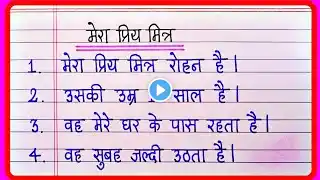 मेरा प्रिय मित्र
1. मेरा प्रिय मित्र रोहन है।
2. उसकी उम्र साल है।
3. वह मेरे घर के पास रहता है।
4. वह सुबह जल्दी उठता है।